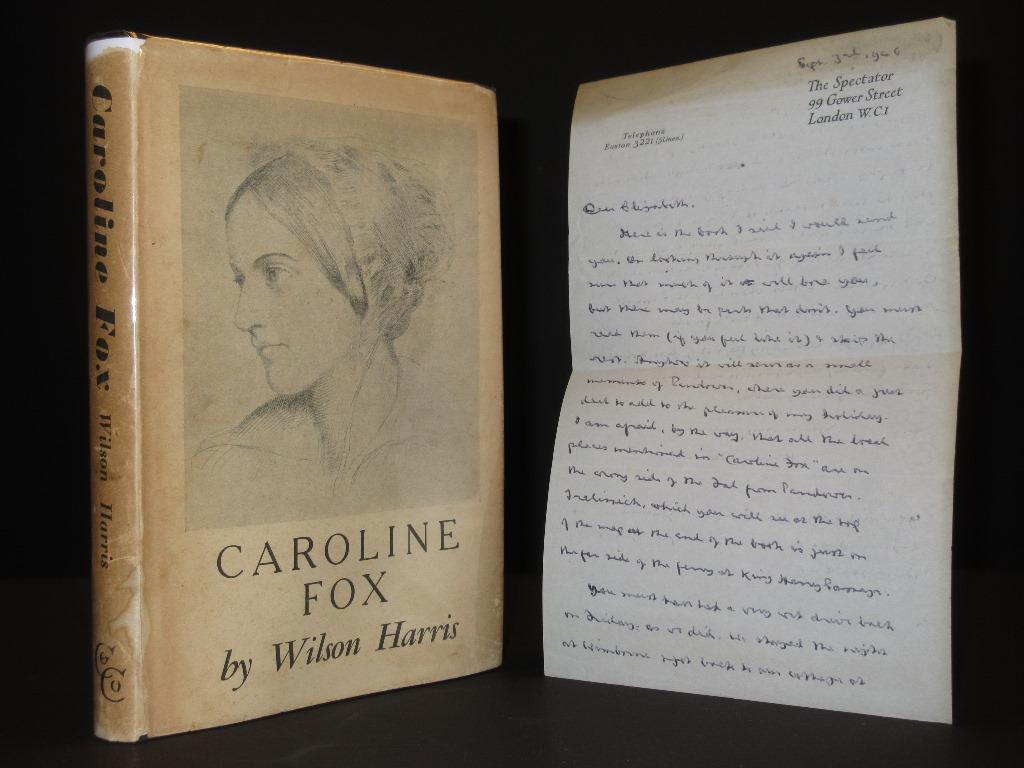 Caroline Fox Wilson Harris
CAROLINE
FOX
by Wilson Harris
Sept. 3rd
The Spectator
99 Gower Street
London W.C.1
Telephone
Euston 3221 (5 lines)
Dear Elizabeth.
Here is the book I said I would send
you. On looking through it again I feel
sure that much of it will bore you,
but there may be parts that don't. You must
read them (if you feel like it) & skip the
rest. Anyhow it will serve as a small
memento of Pendower, where you did a great
deal to add to the pleasure of my holiday.
I am afraid, by the way, that all the local
places mentioned in "Caroline Fox" are on
the wrong side of the Fal from Pendower.
Trelissick, which you will see at the top
of the map at the end of the book is just on
the far side of the ferry at King Harry Passage.
You must have had a very wet drive back
on Friday: as we did. We stayed the night
at Wimborne & got back to our cottage at